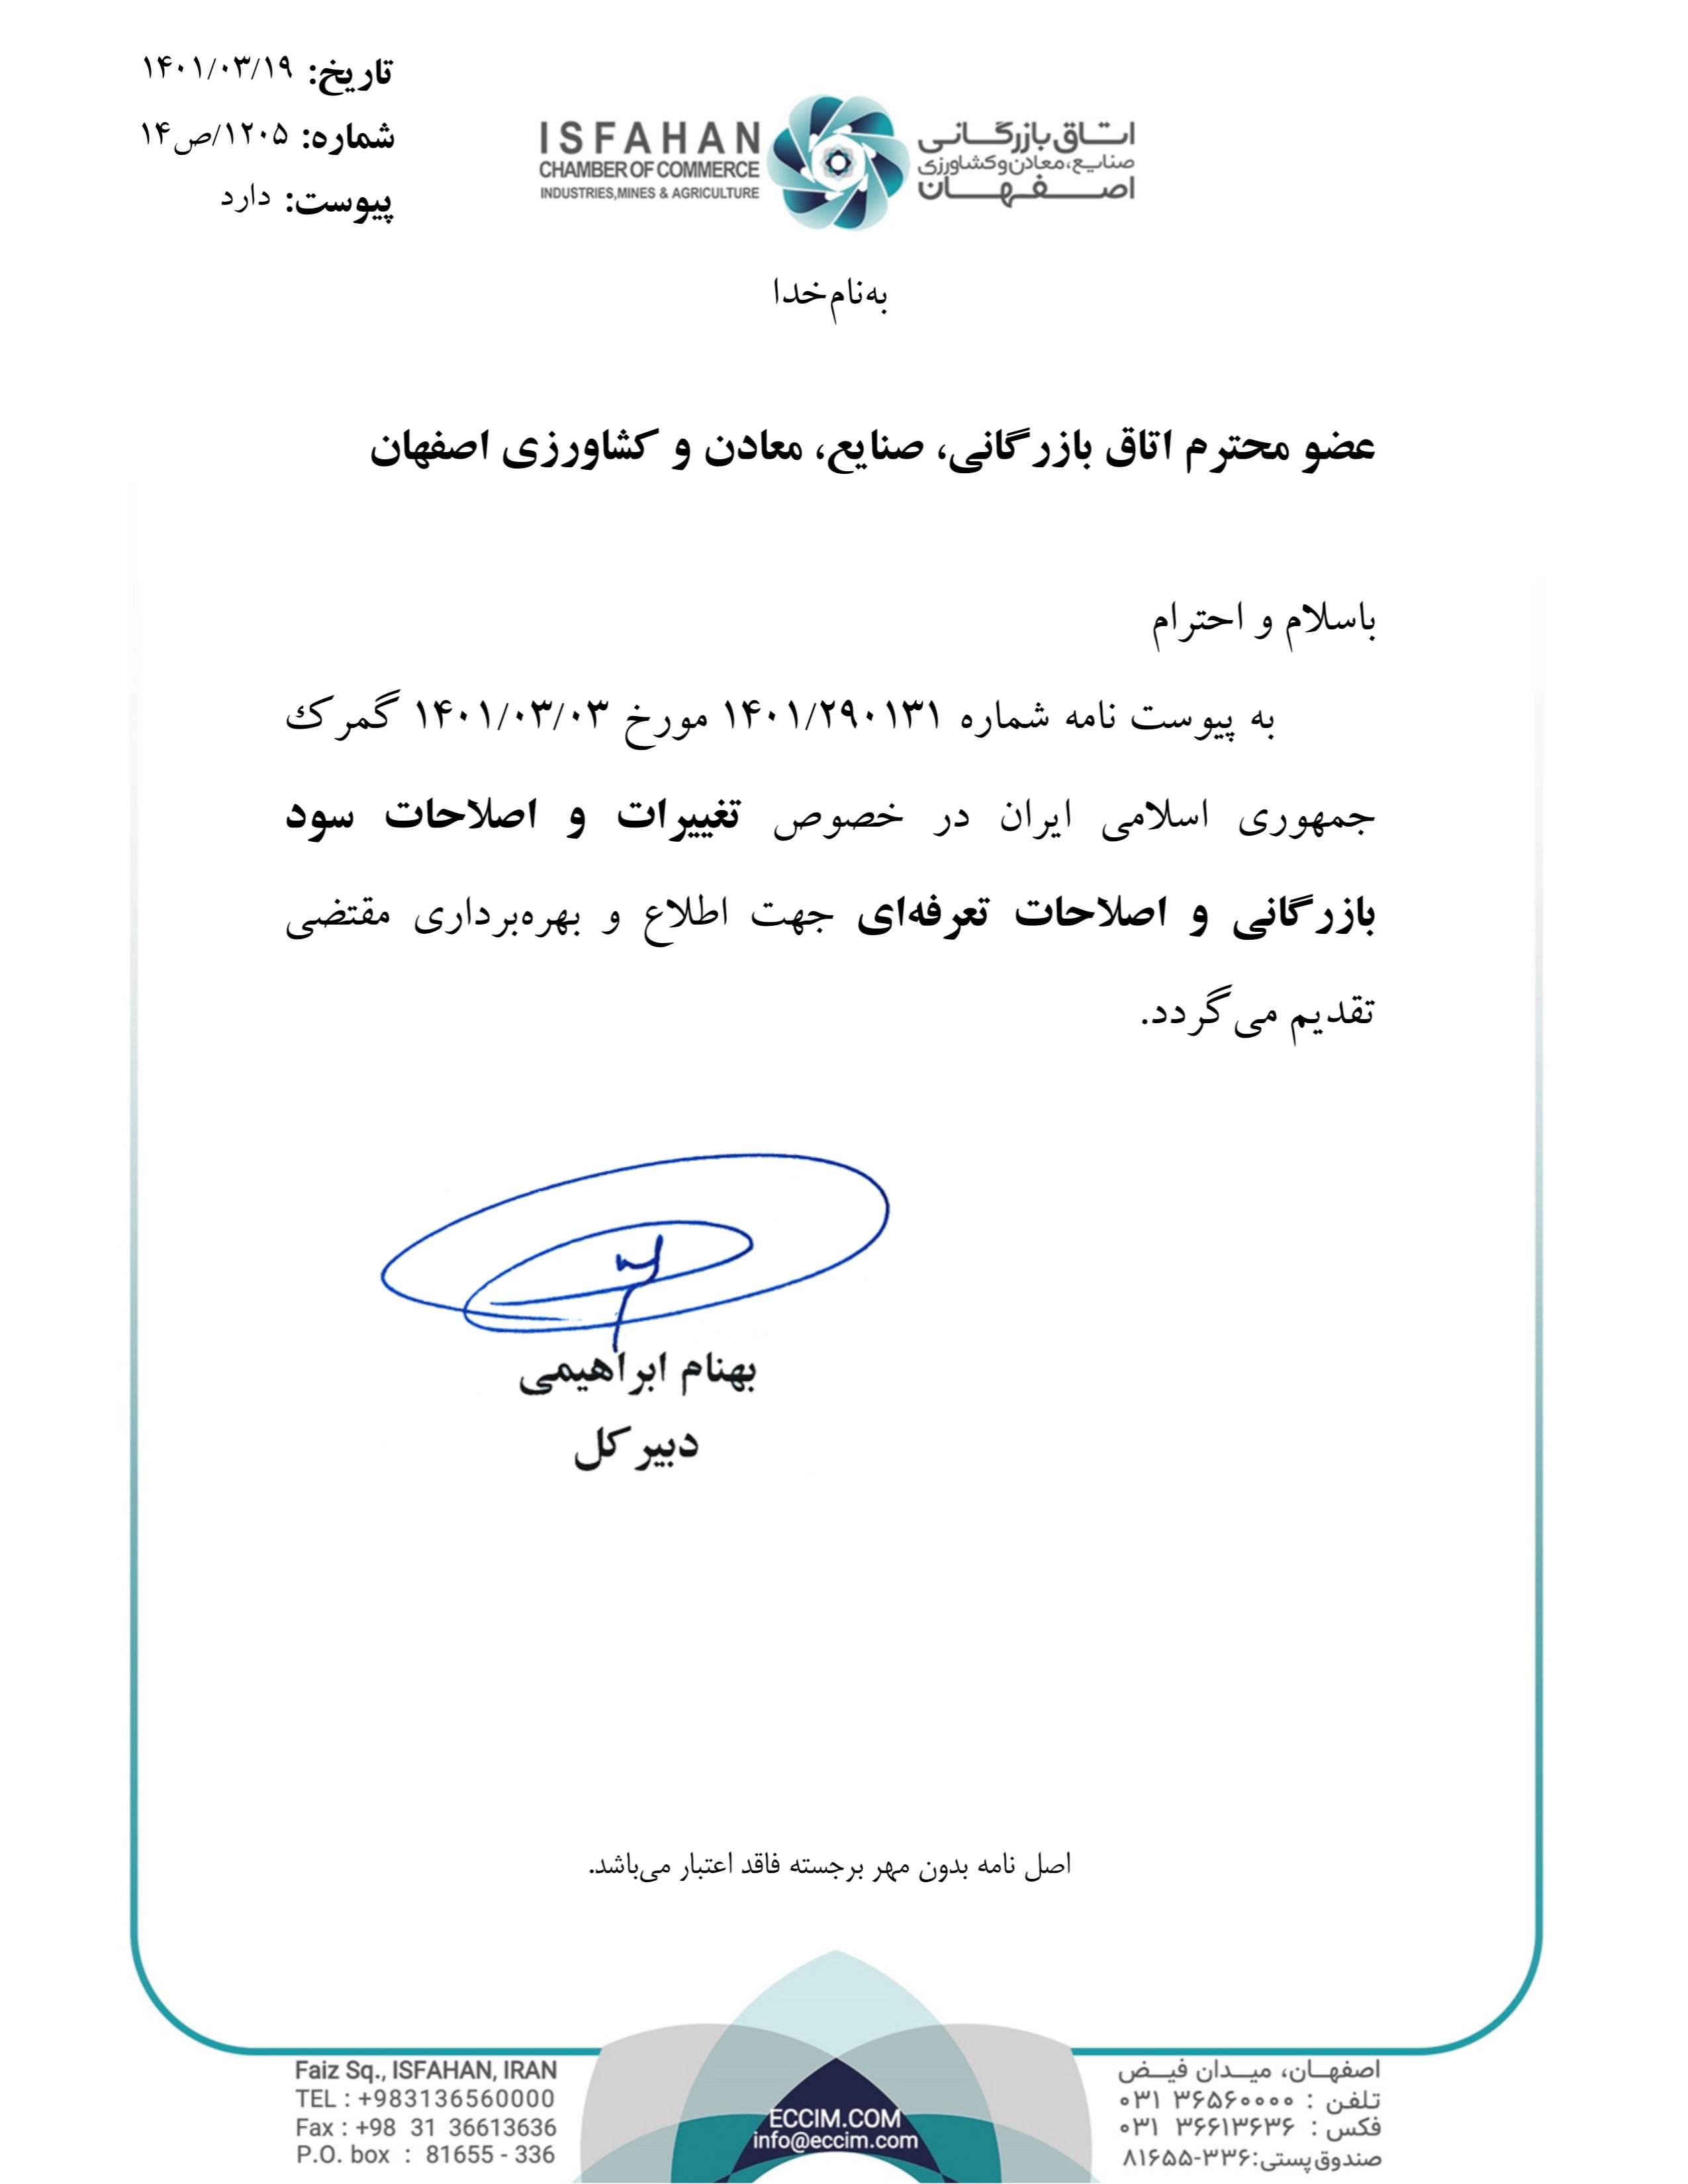 تاریخ: ۱۴۰۱/۰۳/۱۹
شماره: ۱۲۰۵/ص۱۴
پیوست: دارد
ISFAHAN
CHAMBER OF COMMERCE
INDUSTRIES,MINES & AGRICULTURE
اتاق بازرگانی
صنایع، معادن و کشاورزی
اصفهان
به‌نام خدا
عضو محترم اتاق بازرگانی، صنایع، معادن و کشاورزی اصفهان
باسلام و احترام
به پیوست نامه شماره ۱۴۰۱/۲۹۰۱۳۱ مورخ ۱۴۰۱/۰۳/۰۳ گمرک
جمهوری اسلامی ایران در خصوص تغییرات و اصلاحات سود
بازرگانی و اصلاحات تعرفه‌ای جهت اطلاع و بهره‌برداری مقتضی
تقدیم می‌گردد.
بهنام ابراهیمی
دبیر کل
اصل نامه بدون مهر برجسته فاقد اعتبار می‌باشد.
Faiz Sq., ISFAHAN, IRAN
TEL : +983136560000
Fax : +98 31 36613636
P.O. box : 81655 - 336
ECCIM.COM
info@eccim.com
اصفهان، میدان فیض
تلفن : ۳۶۵۶۰۰۰۰ ۰۳۱
فکس : ۳۶۶۱۳۶۳۶ ۰۳۱
صندوق پستی: ۳۳۶-۸۱۶۵۵